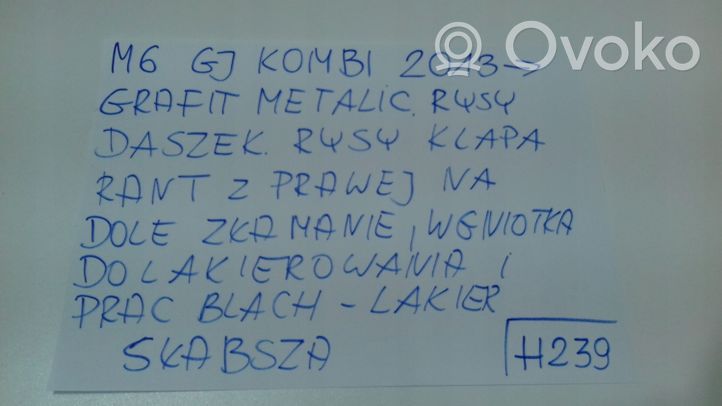 Ovoko
M6 GJ KOMBI 2013→
GRAFIT METALIC. RYSY
DASZEK. RYSY KLAPA
RANT Z PRAWEJ NA
DOLE ZŁAMANIE, WGNIOTKA
DO LAKIEROWANIA I
PRAC BLACH - LAKIER
SŁABSZA
H239